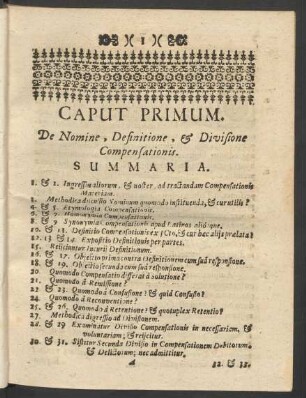 )( 1 )(
CAPUT PRIMUM.
De Nomine, Definitione, & Divisione
Compensationis.
SUMMARIA.
1. & 2. Ingressus aliorum, & noster, ad tractandam Compensationis
Materiam.
3. Methodica discussio Nominum quomodo instituenda, & cur utilis?
4. & 5. Etymologia Compensationis.
6. & 7. Homonymia Compensationis.
8. & 9 Synonymia Compensationis apud Latinos aliosque.
10. & 11. Definitio Compensationis ex ICto, & cur hæc aliis prælata?
12. 13 & 14 Expositio Definitionis per partes.
15. Rejicitur Definitionem.
16. & 17. Objectio prima contra Definitionem cum sua responsione.
18. & 19. Objectio secunda cum sua responsione.
20 Quomodo Compensatio differat à solutione?
21 Quomodo à Remissione?
22 & 23. Quomodo à Confusione? & quid Confusio?
24. Quomodo à Reconventione?
25. & 26 Quomodo à Retentione? & quotuplex Retentio?
27. Methodica digressio ad Divisionem.
28. & 29 Examinatur Divisio Compensationis in necessariam, &
voluntariam; & rejicitur.
30. & 31. Sistitur Secunda Divisio in Compensationem Debitorum,
& Delictorum; nec admittitur.
A 32. & 33.